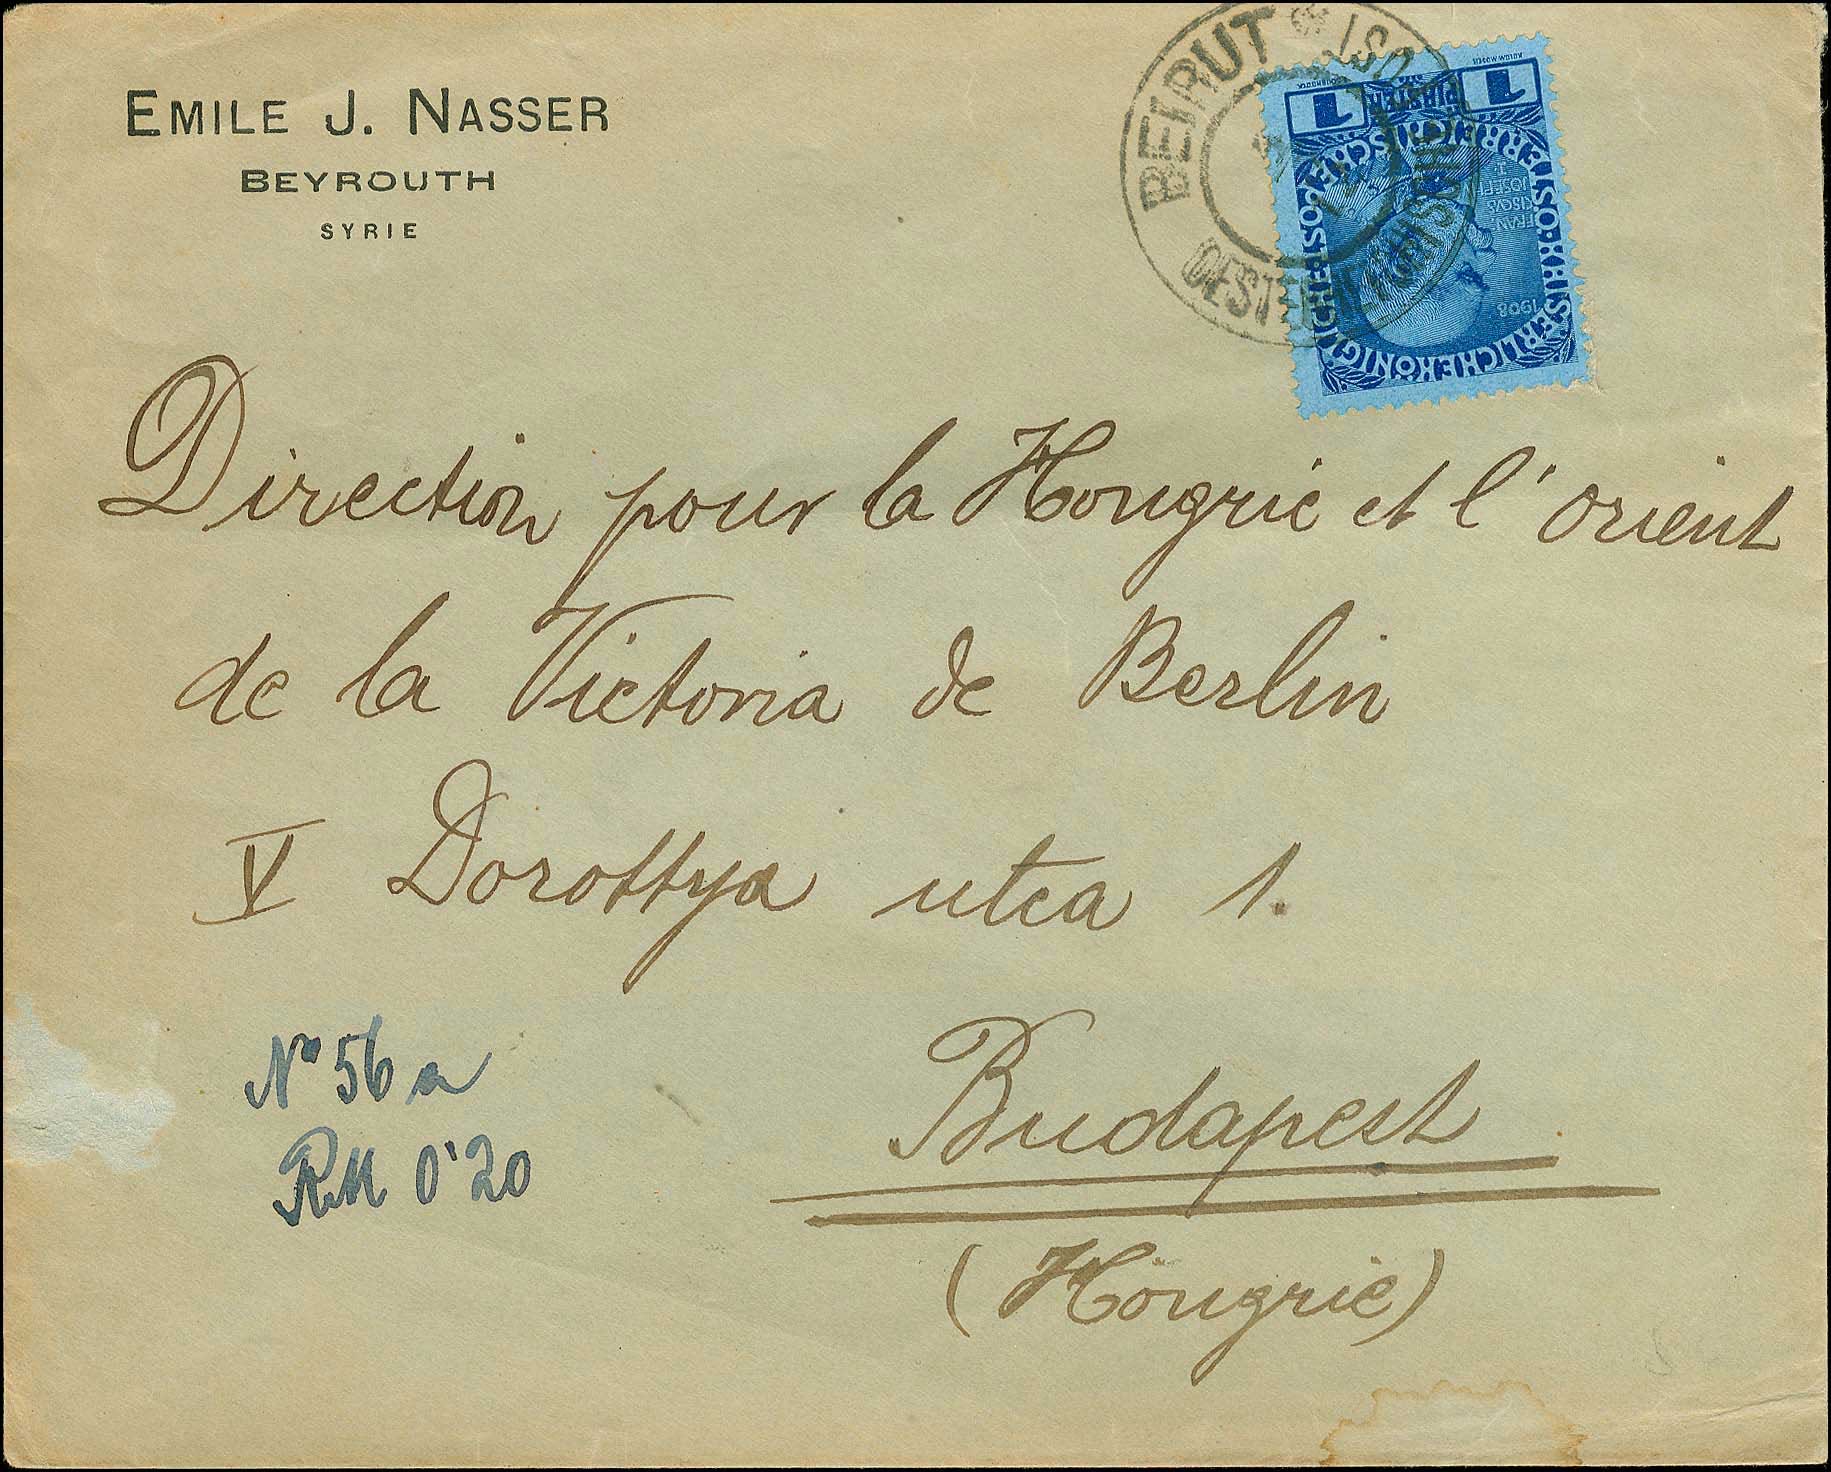 EMILE J. NASSER
BEYROUTH
SYRIE
BEIRUT
1 PIASTER 1
KAISERLICHE KÖNIGLICHE ÖSTERREICHISCHE POST
FRANCISCVS
JOSEPH
I
1908
Direction pour la Hongrie et l'orient
de la Victoria de Berlin
V Dorottya utca 1.
Budapest
(Hongrie)
No 56 a
RM 0'20